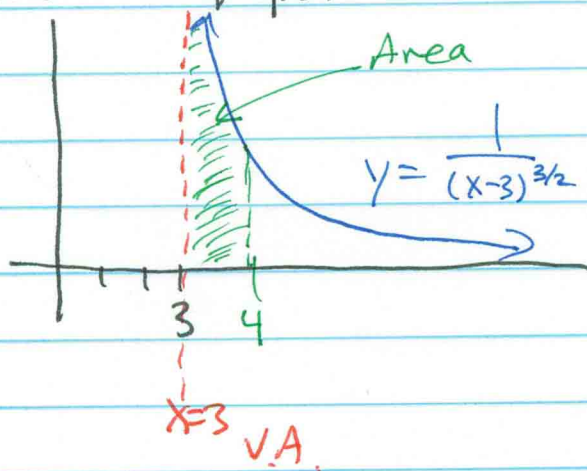 Area
y = 1/(x-3)^{3/2}
3 4
x=3
V.A.